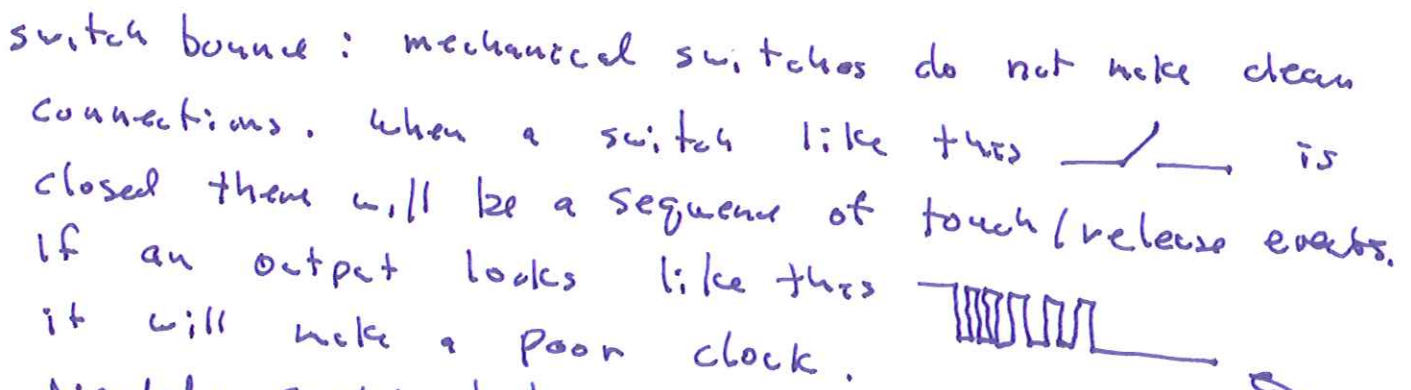 switch bounce : mechanical switches do not make clean
connections. When a switch like this is
closed there will be a sequence of touch/release events.
If an output looks like this
it will make a poor clock.